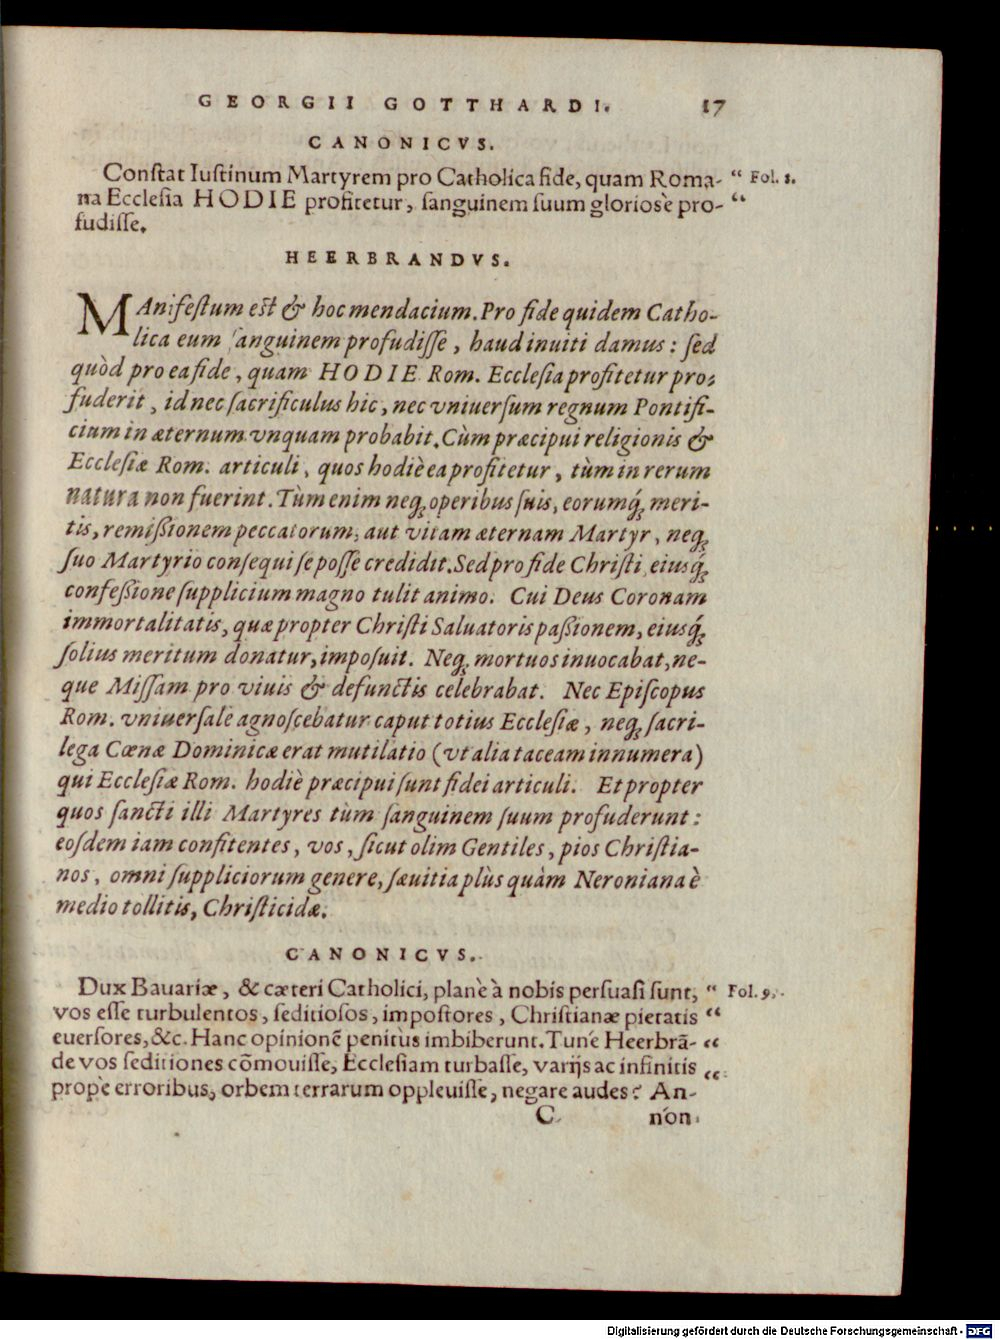 GEORGII GOTTHARDI. 17
CANONICVS.
Conſtat Iuſtinum Martyrem pro Catholica fide, quam Roma- “ Fol. 8.
na Eccleſia HODIE profitetur, ſanguinem ſuum glorioſè pro- “
fudiſſe.
HEERBRANDVS.
MAnifeſtum eſt & hoc mendacium. Pro fide quidem Catho-
lica eum ſanguinem profudiſſe, haud inuiti damus: ſed
quòd pro ea fide, quam HODIE Rom. Eccleſia profitetur pro-
fuderit, id nec ſacrificulus hic, nec vniuerſum regnum Pontifi-
cium in æternum vnquam probabit. Cùm præcipui religionis &
Eccleſiæ Rom. articuli, quos hodiè ea profitetur, tùm in rerum
natura non fuerint. Tùm enim neq; operibus ſuis, eorumq́; meri-
tis, remißionem peccatorum, aut vitam æternam Martyr, neq;
ſuo Martyrio conſequi ſe poſſe credidit. Sed pro fide Chriſti eiusq́;
confeßione ſupplicium magno tulit animo. Cui Deus Coronam
immortalitatis, quæ propter Chriſti Saluatoris paßionem, eiusq́;
ſolius meritum donatur, impoſuit. Neq; mortuos inuocabat, ne-
que Miſſam pro viuis & defunctis celebrabat. Nec Epiſcopus
Rom. vniuerſale agnoſcebatur caput totius Eccleſiæ, neq; ſacri-
lega Cœnæ Dominicæ erat mutilatio (vt alia taceam innumera)
qui Eccleſiæ Rom. hodiè præcipui ſunt fidei articuli. Et propter
quos ſancti illi Martyres tùm ſanguinem ſuum profuderunt:
eoſdem iam confitentes, vos, ſicut olim Gentiles, pios Chriſtia-
nos, omni ſuppliciorum genere, ſæuitia plùs quàm Neroniana è
medio tollitis, Chriſticidæ.
CANONICVS.
Dux Bauariæ, & cæteri Catholici, planè à nobis perſuaſi ſunt, “ Fol. 9.
vos eſſe turbulentos, ſeditioſos, impoſtores, Chriſtianæ pietatis “
euerſores, &c. Hanc opinionẽ penitùs imbiberunt. Tunè Heerbrã- “
de vos ſeditiones cõmouiſſe, Eccleſiam turbaſſe, varijs ac infinitis “
propè erroribus, orbem terrarum oppleuiſſe, negare audes? An-
C nón
Digitalisierung gefördert durch die Deutsche Forschungsgemeinschaft - DFG